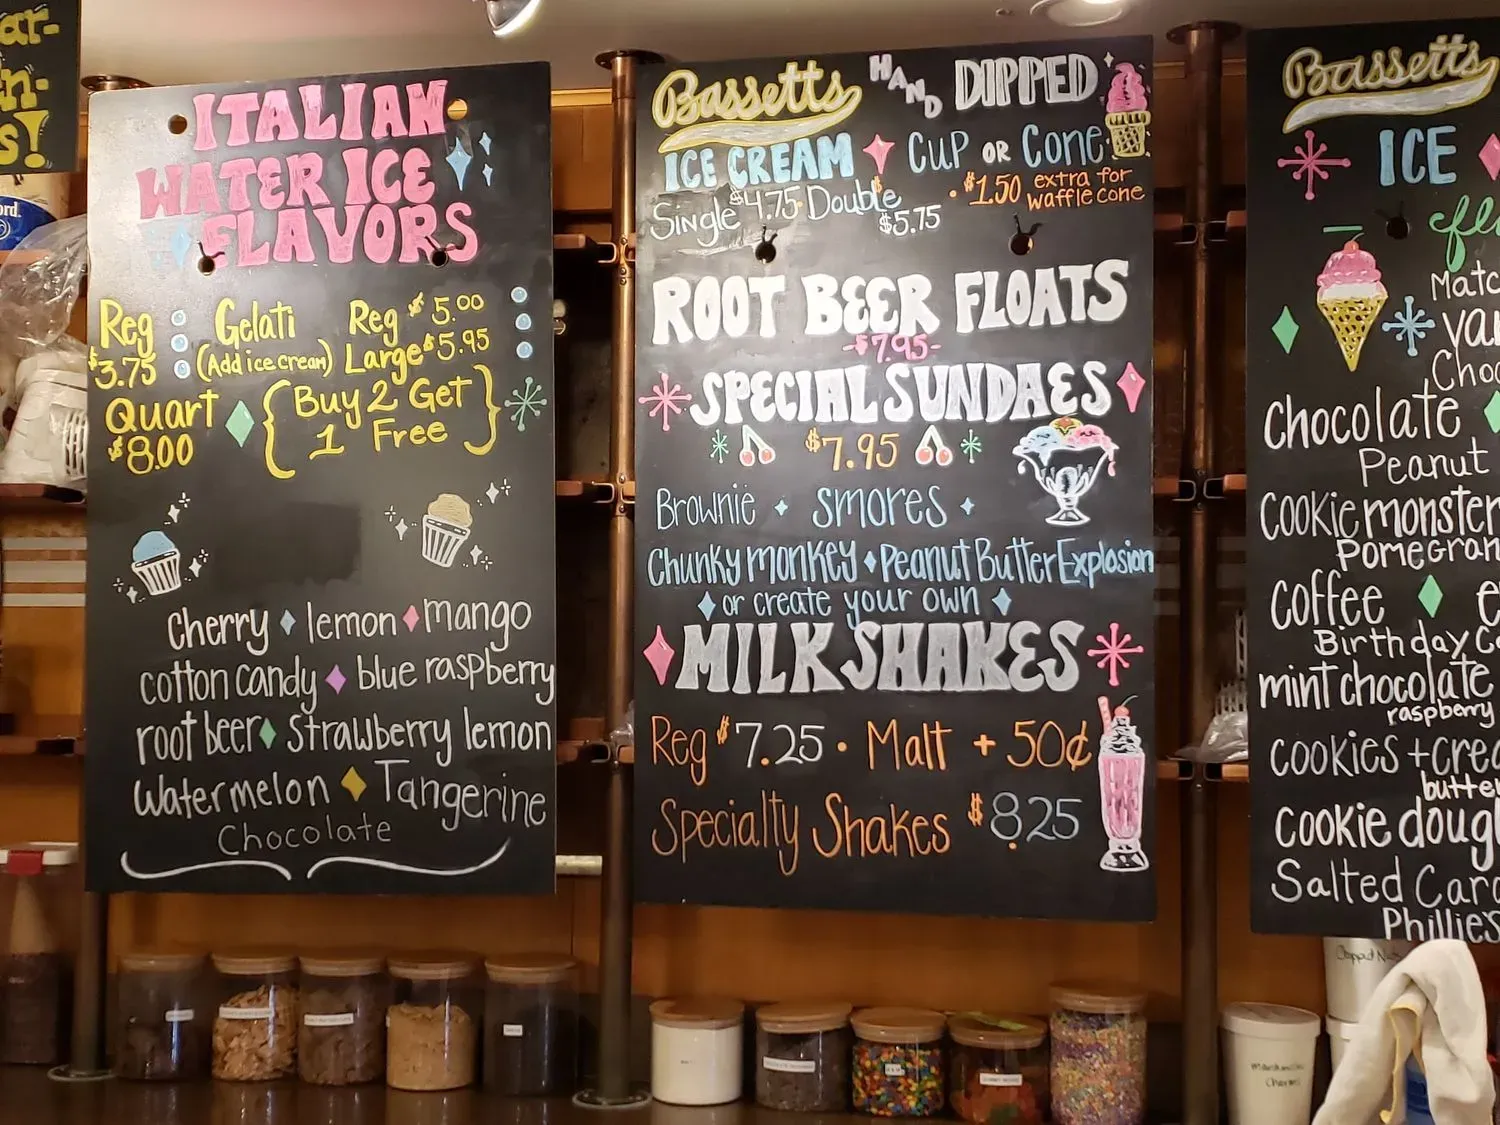 ord.
ITALIAN
WATER ICE
FLAVORS
Reg
$3.75
Gelati
(Add ice cream)
Reg $5.00
Large $5.95
Quart
$8.00
{Buy 2 Get
1 Free}
cherry lemon mango
cotton candy blue raspberry
root beer strawberry lemon
watermelon Tangerine
Chocolate
Bassetts HAND DIPPED
ICE CREAM CUP OR CONE
Single $4.75 Double $5.75
• $1.50 extra for
waffle cone
ROOT BEER FLOATS
-$7.95-
SPECIAL SUNDAES
$7.95
Brownie smores
Chunky monkey Peanut Butter Explosion
or create your own
MILKSHAKES
Reg $7.25 • Malt + 50¢
Specialty Shakes $8.25
Bassetts
ICE
Matc
Chocolate
Peanut
cookie monster
Pomegran
coffee
Birthday
mint chocolate
raspberry
cookies +
butter
cookie doug
Salted
Phillies